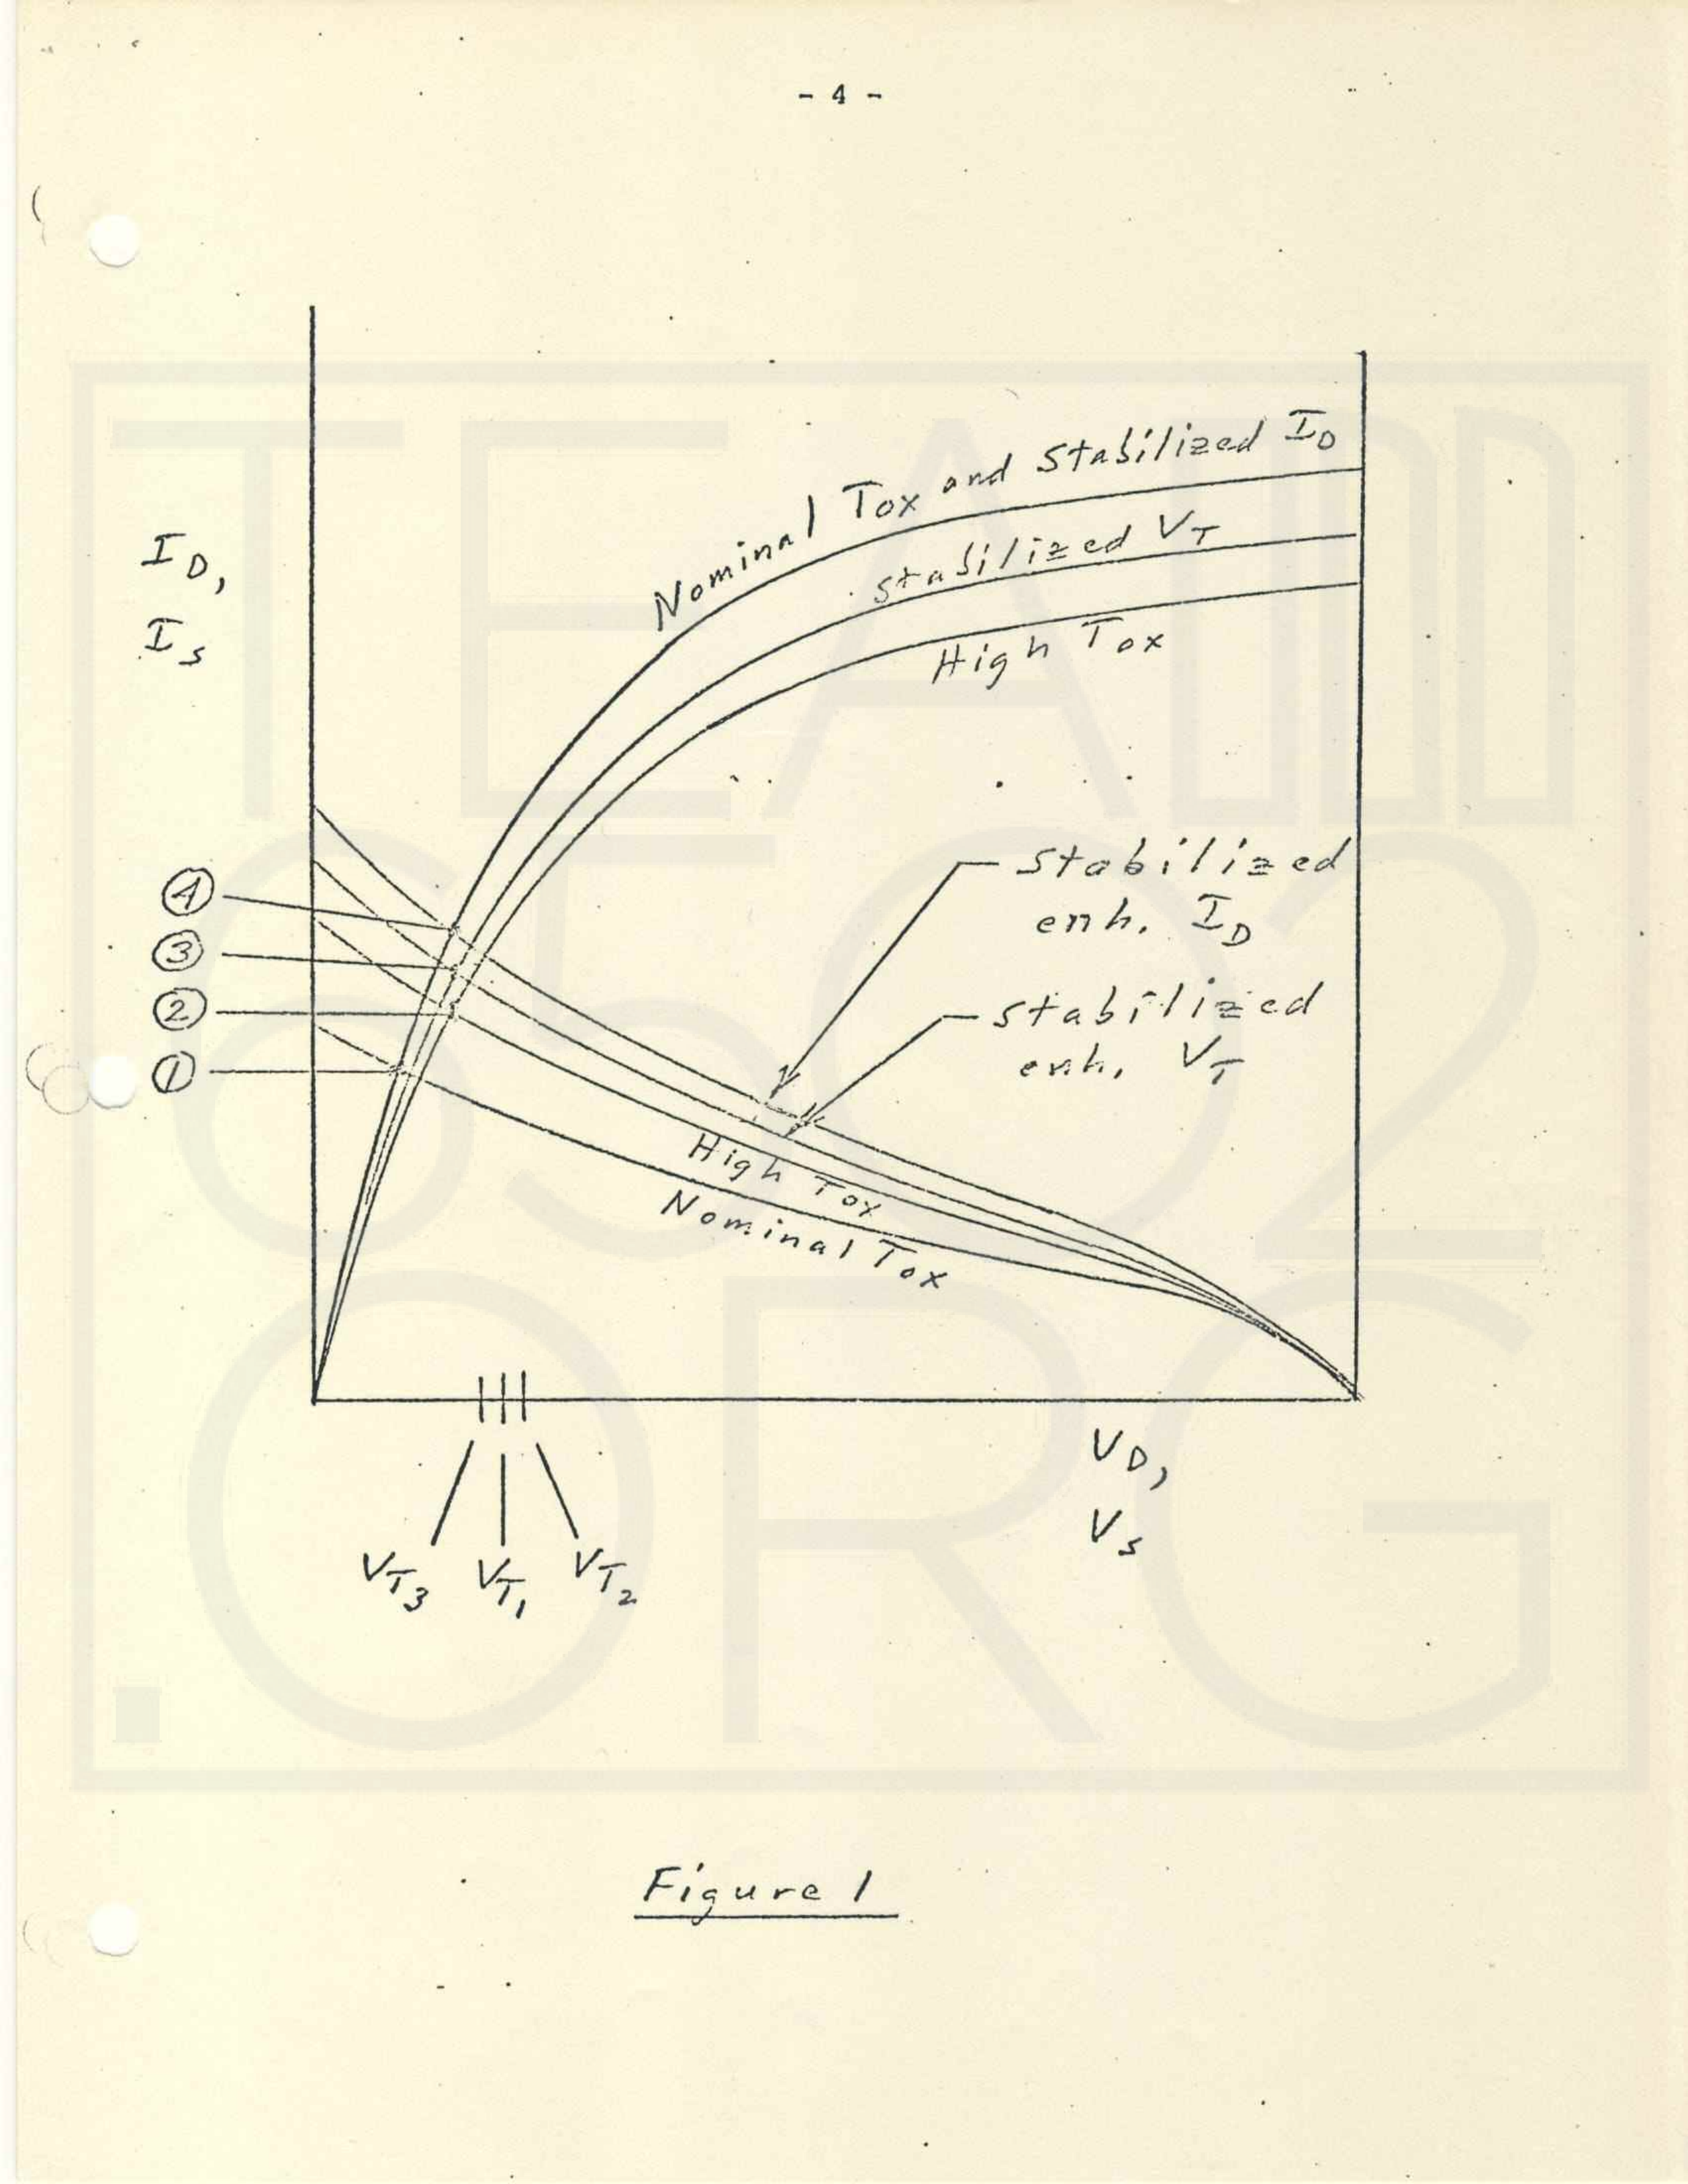 - 4 -
Nominal Tox and Stabilized ID
Stabilized VT
High Tox
ID,
IS
Stabilized
enh. ID
④
③
②
①
Stabilized
enh. VT
High Tox
Nominal Tox
VD,
VS
VT3 VT1 VT2
Figure 1
TEAM
6502
.ORG